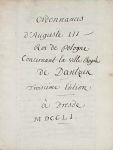 Ordonnances
d'Auguste III
Roi de Pologne
Concernant la Ville Royale
de Dantzig
Troisieme Edition
à Dresde
MDCCLI